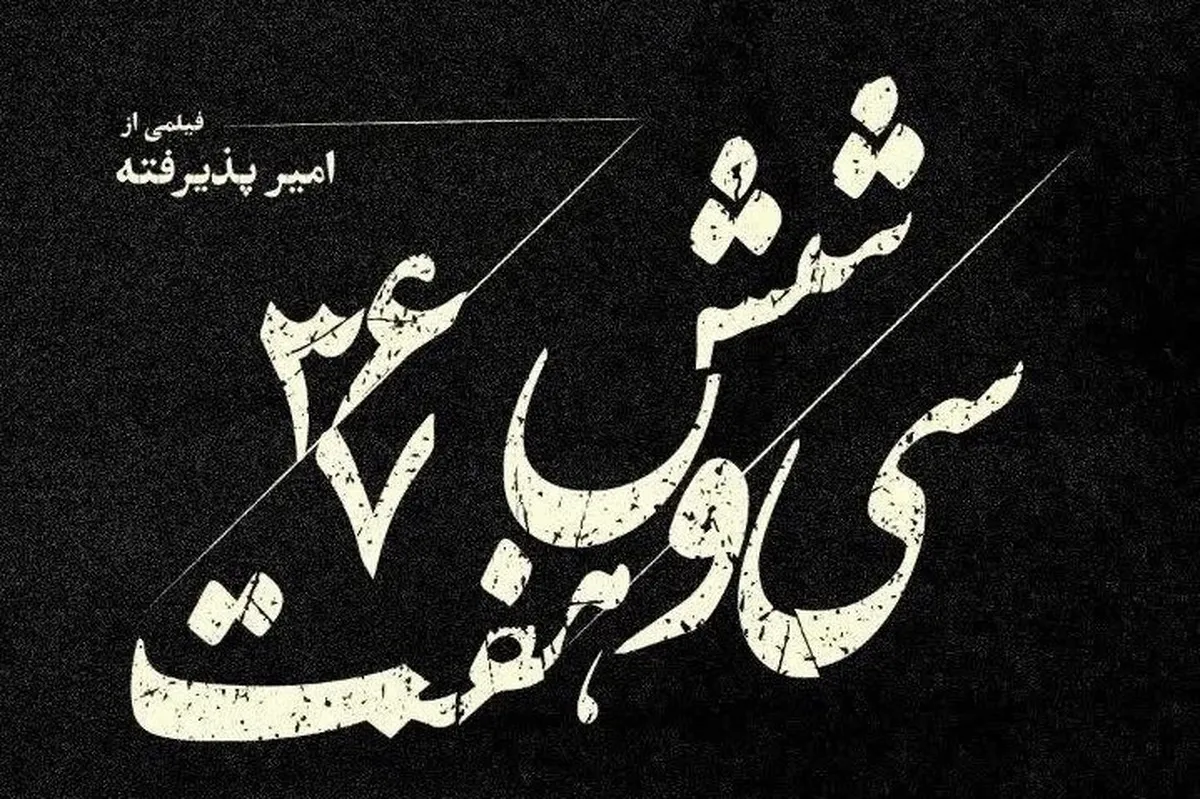 فیلمی از
امیر پذیرفته
شش
سی و
هفت
۳۶
۷